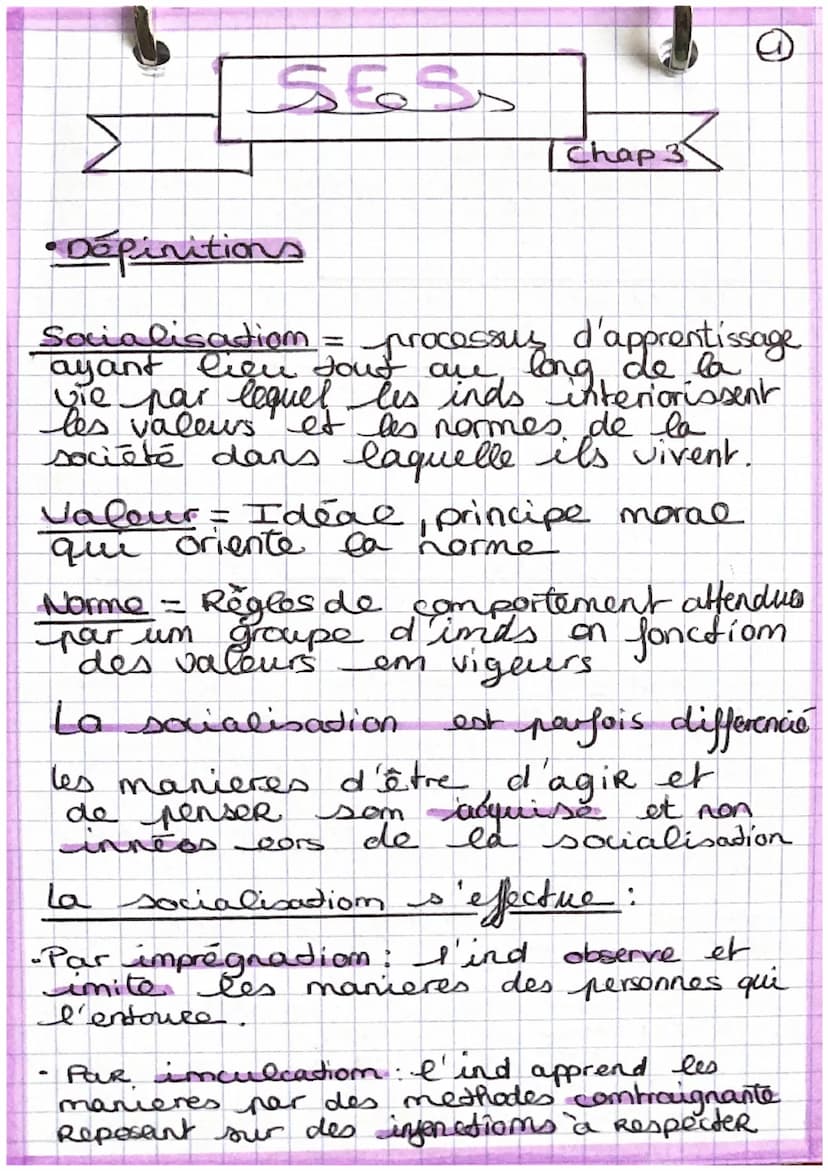 1
SES
Chap 3
• Définitions
Socialisation = processus d'apprentissage
ayant lieu tout au long de la
vie par lequel les inds interiorissent
les valeurs et les normes de la
société dans laquelle ils vivent.
Valeur = Idéal, principe moral
qui oriente la norme
Norme = Règles de comportement attendus
par un groupe d'inds en fonction
des valeurs en vigeurs
La socialisation est parfois differencié
les manieres d'être, d'agir et
de penser son adquise et non
innées lors de la socialisation
La socialisation s'effectue :
- Par imprégnation : l'ind observe et
imite les manieres des personnes qui
l'entoure.
- Par inculcation : l'ind apprend les
manieres par des methodes contraignante
Reposant sur des injonctions à Respecter